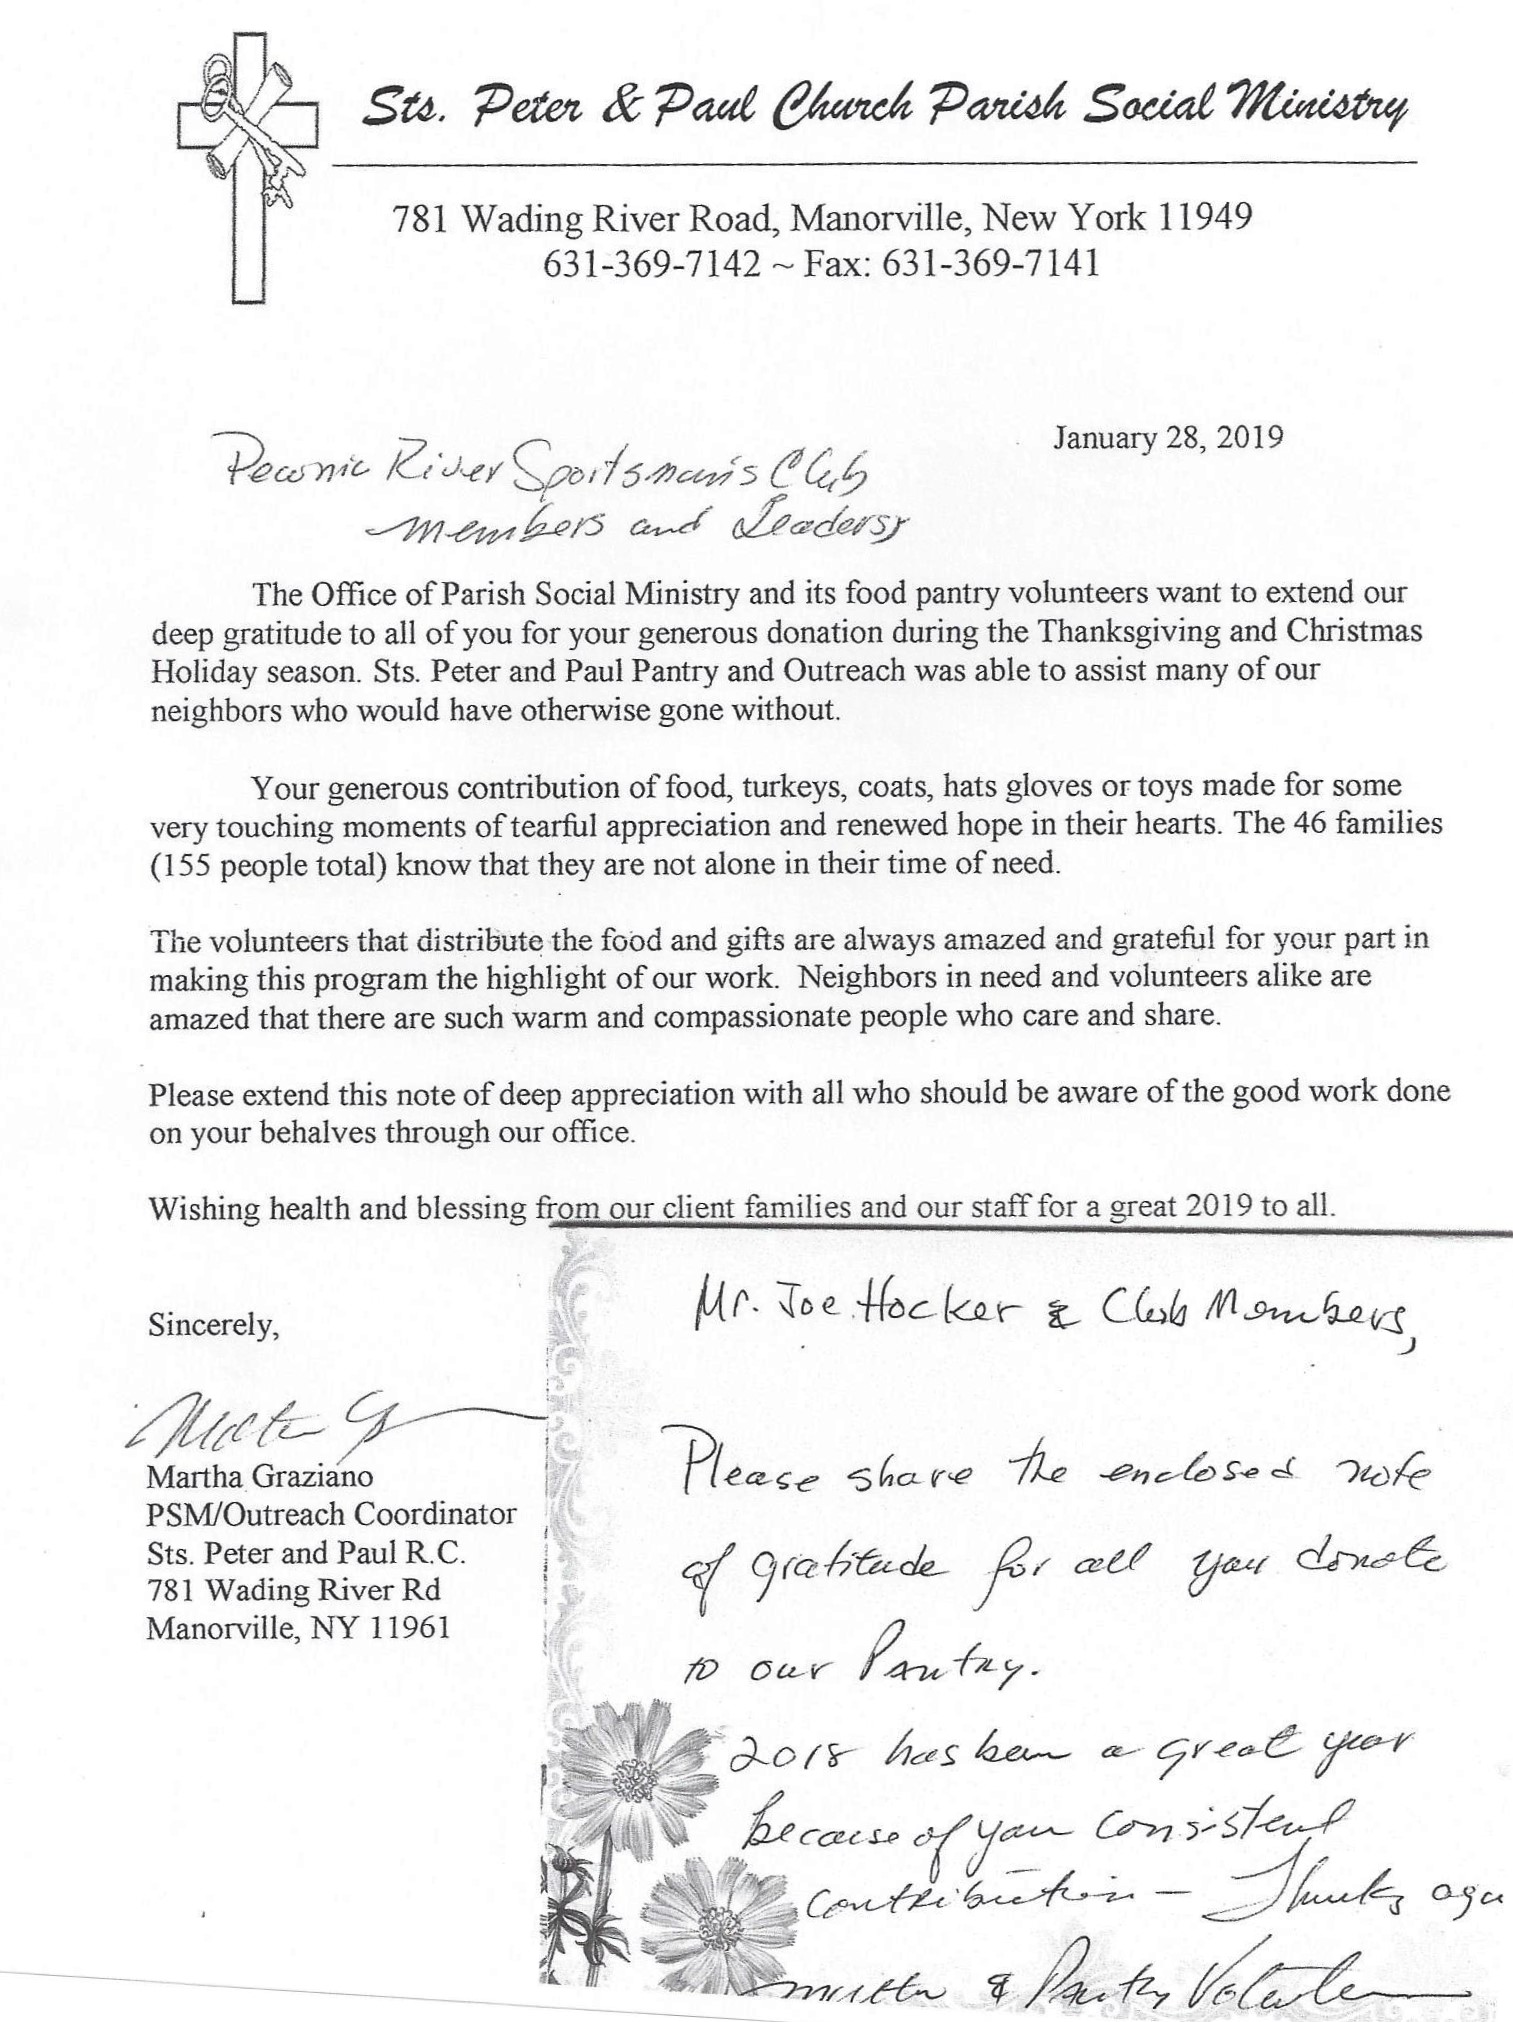 Sts. Peter & Paul Church Parish Social Ministry
781 Wading River Road, Manorville, New York 11949
631-369-7142 ~ Fax: 631-369-7141
January 28, 2019
Peconic River Sportsman's Club
members and Leaders,
The Office of Parish Social Ministry and its food pantry volunteers want to extend our
deep gratitude to all of you for your generous donation during the Thanksgiving and Christmas
Holiday season. Sts. Peter and Paul Pantry and Outreach was able to assist many of our
neighbors who would have otherwise gone without.
Your generous contribution of food, turkeys, coats, hats gloves or toys made for some
very touching moments of tearful appreciation and renewed hope in their hearts. The 46 families
(155 people total) know that they are not alone in their time of need.
The volunteers that distribute the food and gifts are always amazed and grateful for your part in
making this program the highlight of our work. Neighbors in need and volunteers alike are
amazed that there are such warm and compassionate people who care and share.
Please extend this note of deep appreciation with all who should be aware of the good work done
on your behalves through our office.
Wishing health and blessing from our client families and our staff for a great 2019 to all.
Sincerely,
Martha Graziano
PSM/Outreach Coordinator
Sts. Peter and Paul R.C.
781 Wading River Rd
Manorville, NY 11961
Mr. Joe Hocker & Club Members,
Please share the enclosed note
of gratitude for all you donate
to our Pantry.
2018 has been a great year
because of your consistent
contribution – Thanks aga
Martha & Pantry Volunteers